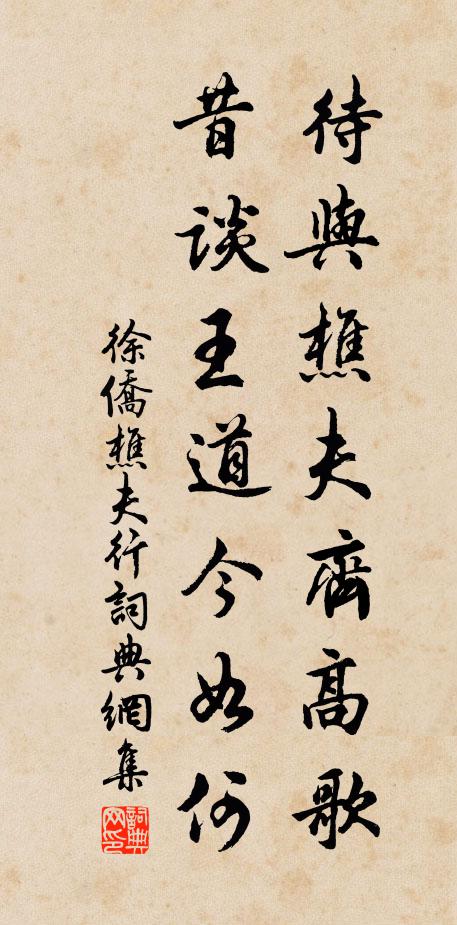 待與樵夫齊高歌
昔談王道今如何
徐僑樵夫行詞典網集
詞典网印